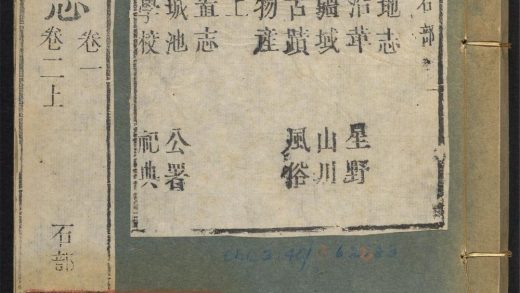 石部
地志
沿革 星野
疆域 山川
古蹟 風俗
物產
上
置志
城池 公署
學校 祀典
志
卷一
卷二上
石部